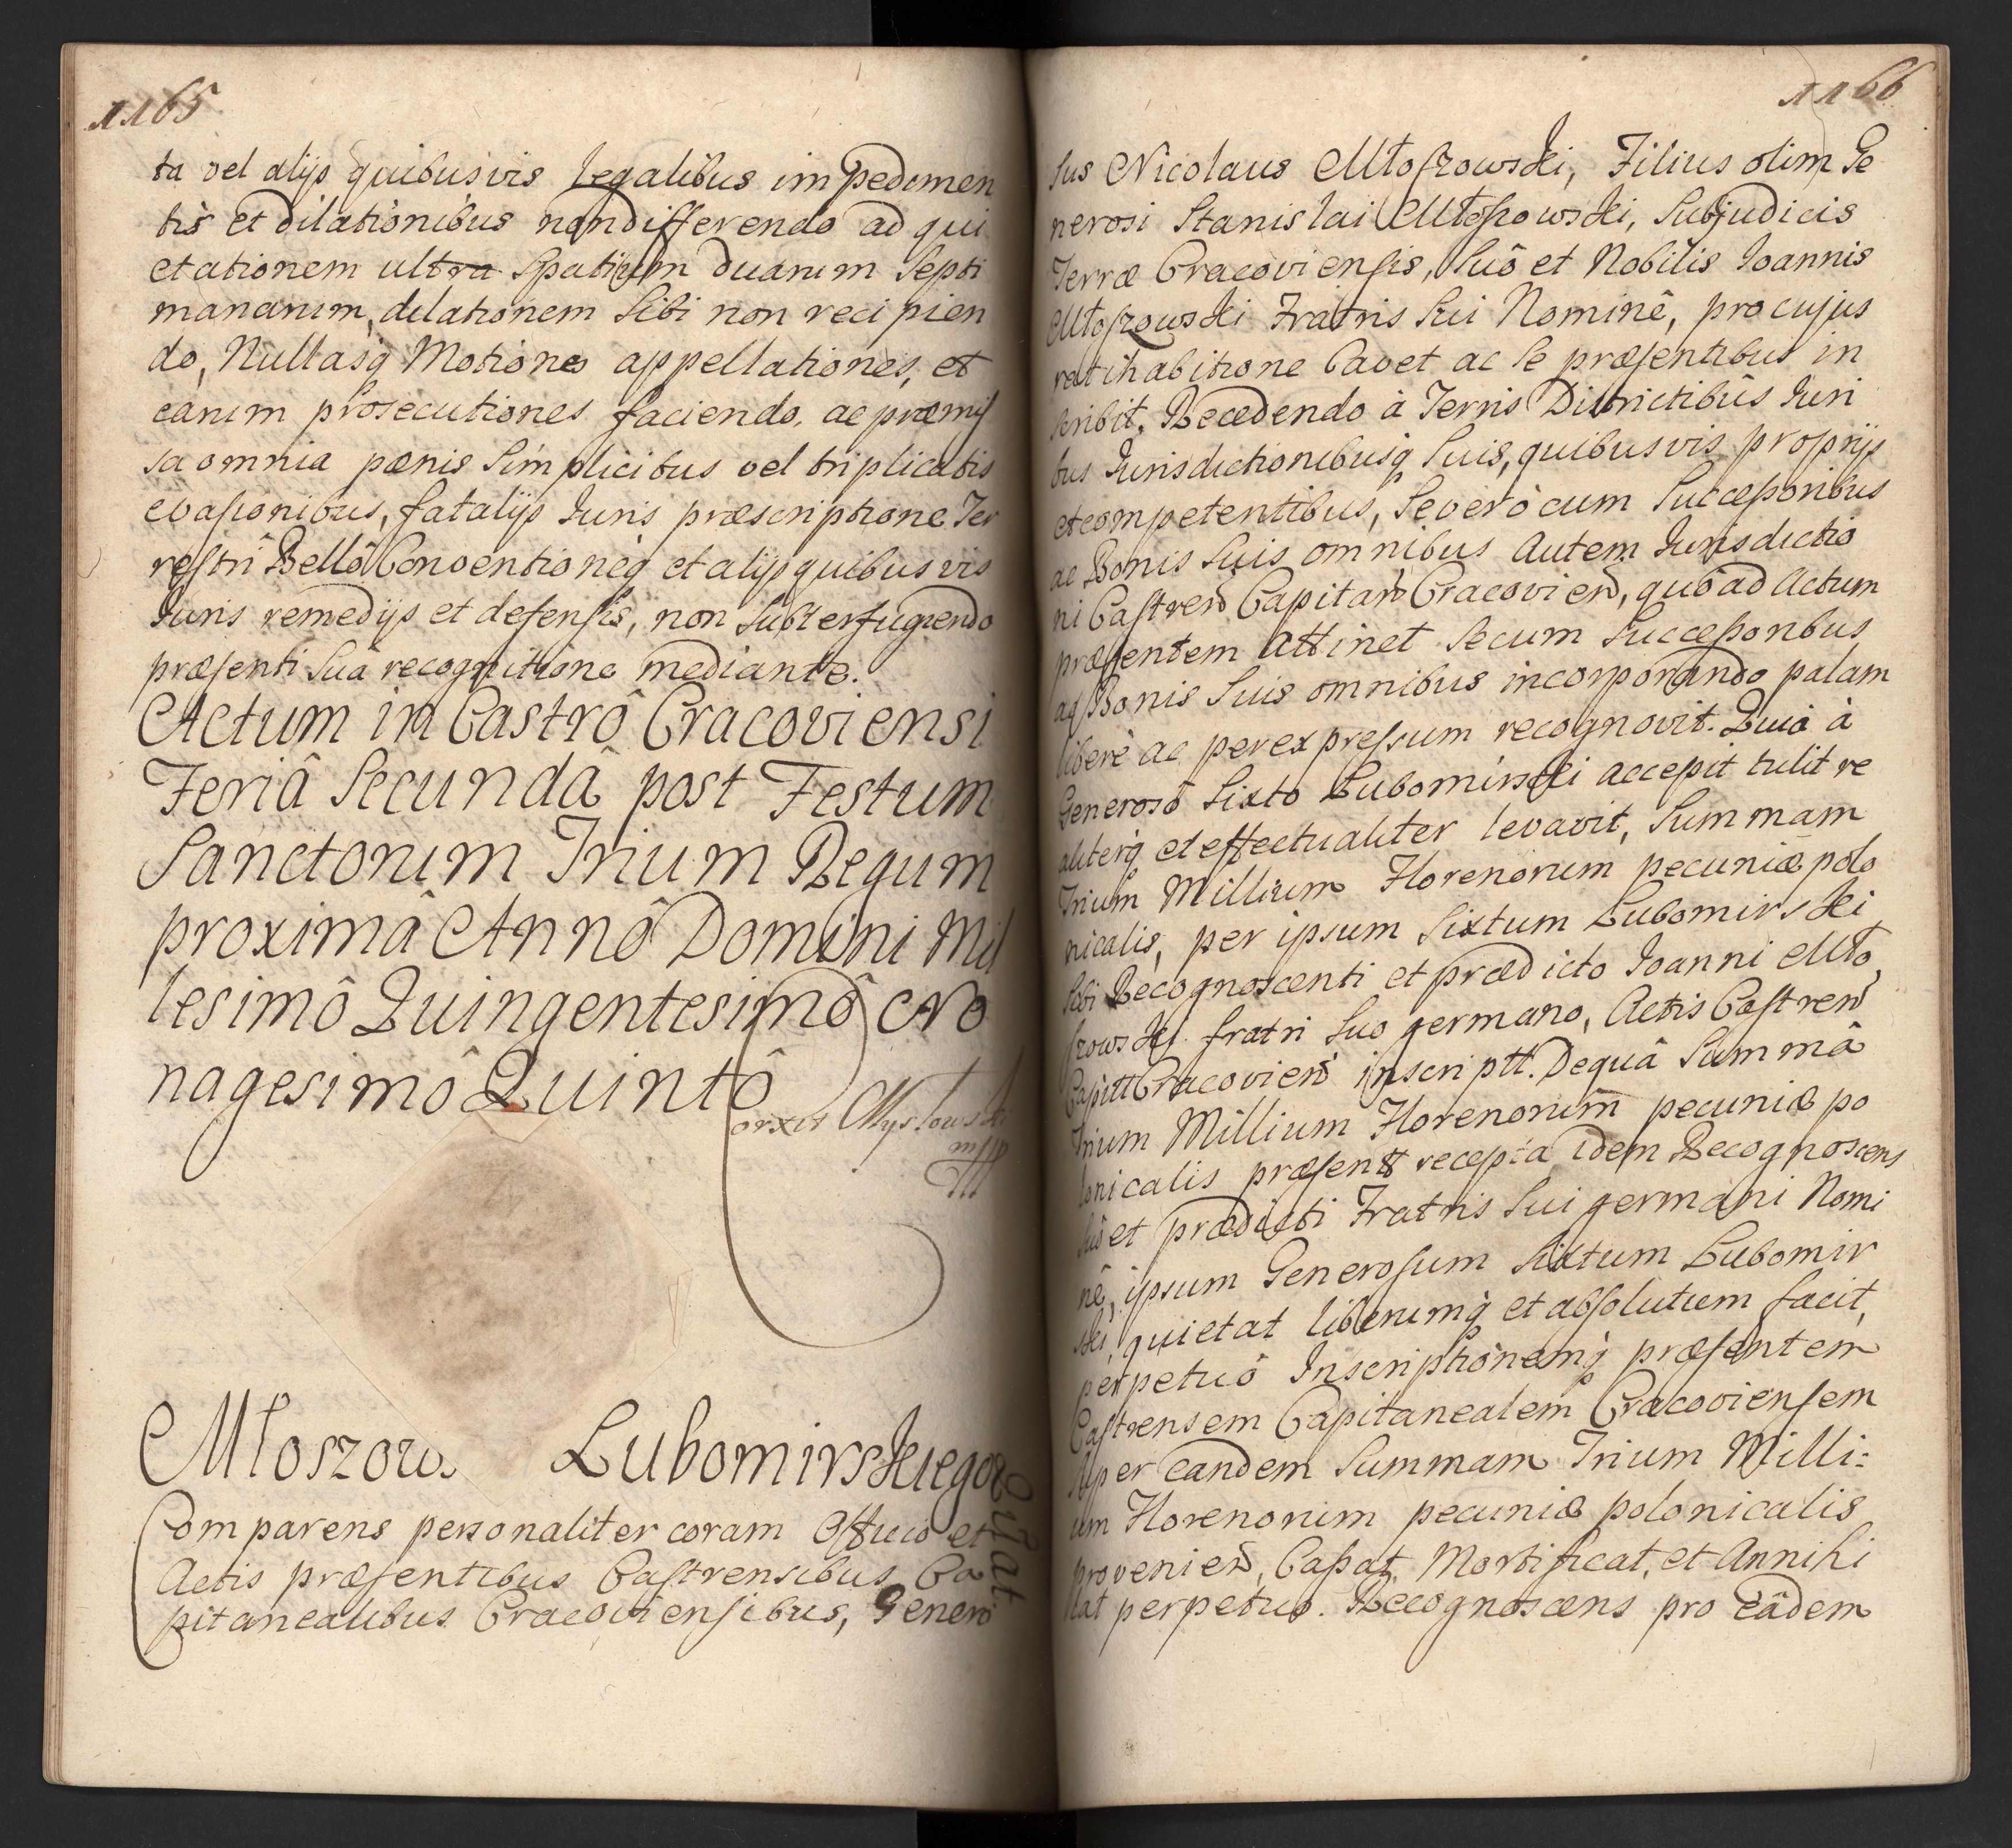 1165
ta vel alijs quibusvis Legalibus impedimen
tis et dilationibus non differendo ad qui
etationem ultra Spatium duarum Septi
manarum, dilationem Sibi non recipien
do, Nullasq Motiones appellationes, et
earum prosecutiones faciendo, ac præmis
sa omnia pænis Simplicibus vel triplicatis
evasionibus, fatalijs Juris præscriptione Ter
restri Bellô Conventioneq et alijs quibusvis
Juris remedijs et defensis, non Subterfugiendo
præsenti Suâ recognitione mediante.
Actum in Castrô Cracoviensi
Feriâ Secundâ post Festum
Sanctorum Trium Regum
proximâ Annô Domini Mil
lesimô Quingentesimô No
nagesimô Quintô
Młoszows Lubomirskiego
Comparens personaliter coram Officio et
Actis præsentibus Castrensibus Ca
pitanealibus Cracoviensibus, Genero
1166
sus Nicolaus Młoszowski, Filius olim Ge
nerosi Stanislai Młoszowski, Subjudicis
Terræ Cracoviensis, Suô et Nobilis Joannis
Młoszowski Fratris Sui Nominê, pro cujus
ratihabitione Cavet ac Se præsentibus in
scribit. Recedendo à Terris Districtibûs Juri
bus Jurisdictionibusq Suis, quibusvis proprijs
et competentibus, Se verò cum Successoribus
ac Bonis Suis omnibus Autem Jurisdictio
ni Castren Capitan Cracovien, quô ad Actum
præsentem attinet Secum Successoribus
aq Bonis Suis omnibus incorporando palam
liberè ac per expressum recognovit. Quia à
Generosô Sixto Lubomirski accepit tulit re
aliterq et effectualiter levavit, Summam
Trium Millium Florenorum pecuniæ polo
nicalis, per ipsum Sixtum Lubomirski
Sibi Recognoscenti et prædicto Joanni Mło
szowski fratri Suo germano, Actis Castren
Capitt Cracovien inscriptt. De quâ Summâ
Trium Millium Florenorum pecuniæ po
lonicalis præsentt recepta idem Recognoscens
Suô et prædicti Fratris Sui germani Nomi
nê, ipsum Generosum Sixtum Lubomir
ski, quietat liberumq et absolutum facit,
perpetuô Inscriptionemq præsentem
Castrensem Capitanealem Cracoviensem
Super eandem Summam Trium Milli:
um Florenorum pecuniæ polonicalis
provenien, Cassat, Mortificat, et Annihi
lat perpetuo. Recognoscens pro eâdem